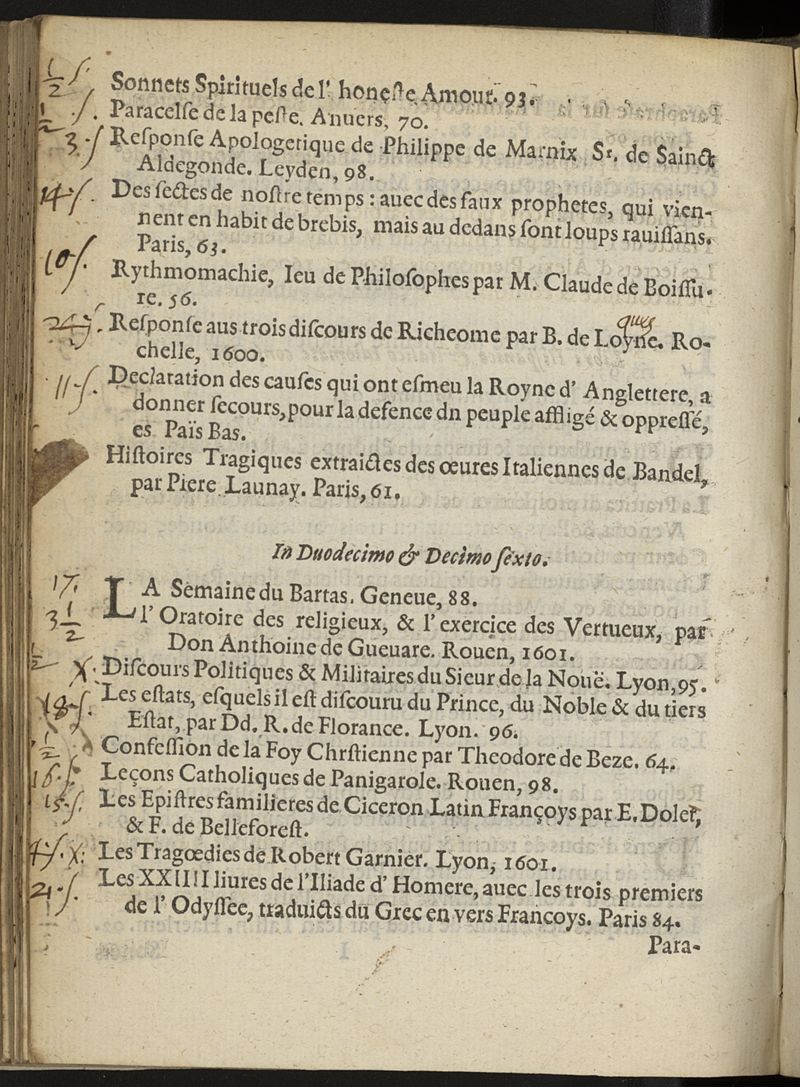 ½ ʃ. Sonnets Spirituels de l' honeſte Amour. 93.
½ ʃ. Paracelſe de la peſte. Anuers, 70.
3 ʃ Reſponſe Apologetique de Philippe de Marnix Sr. de Sainct
Aldegonde. Leyden, 98.
14 ʃ. Des ſectes de noſtre temps : auec des faux prophetes, qui vien-
nent en habit de brebis, mais au dedans ſont loups rauiſſans.
Paris, 63.
10 ʃ. Rythmomachie, Ieu de Philoſophes par M. Claude de Boiſſu-
re. 56.
Reſponſe aus trois diſcours de Richeome par B. de Loyne. Ro-
chelle, 1600.
11 ʃ. Declaration des cauſes qui ont eſmeu la Royne d' Anglettere, a
donner ſecours, pour la defence dn peuple affligé & oppreſſé,
es Païs Bas.
Hiſtoires Tragiques extraictes des œures Italiennes de Bandel,
par Piere Launay. Paris, 61.
In Duodecimo & Decimo ſexto.
17. LA Semaine du Bartas. Geneue, 88.
3½ l' Oratoire des religieux, & l' exercice des Vertueux, par
Don Anthoine de Gueuare. Rouen, 1601.
½ X. Diſcours Politiques & Militaires du Sieur de la Nouë. Lyon, 95.
18 ʃ. Les eſtats, eſquels il eſt diſcouru du Prince, du Noble & du tiers
Eſtat, par Dd. R. de Florance. Lyon. 96.
½ Confeſſion de la Foy Chrſtienne par Theodore de Beze. 64.
Leçons Catholiques de Panigarole. Rouen, 98.
15 ʃ. Les Epiſtres familieres de Ciceron Latin Françoys par E. Dolet,
& F. de Belleforeſt.
Les Tragœdies de Robert Garnier. Lyon, 1601.
21 ʃ. Les XXIIII liures de l'Iliade d' Homere, auec les trois premiers
de l' Odyſſee, traduicts du Grec en vers Francoys. Paris 84.
Para-